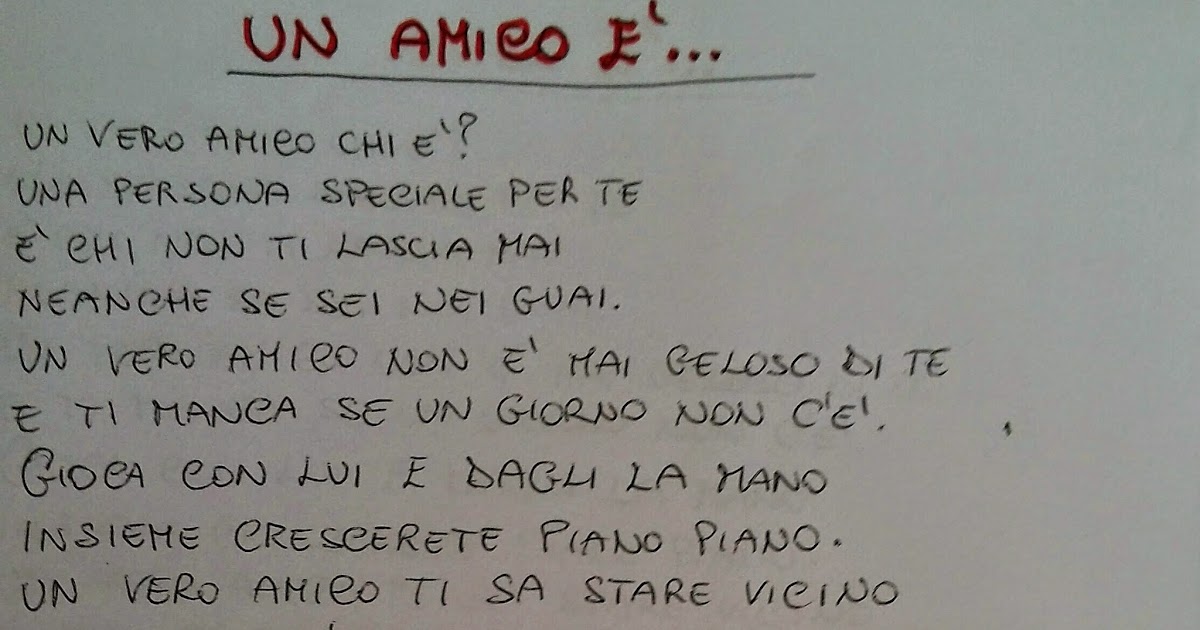 UN AMICO E'...
UN VERO AMICO CHI E'?
UNA PERSONA SPECIALE PER TE
E' CHI NON TI LASCIA MAI
NEANCHE SE SEI NEI GUAI.
UN VERO AMICO NON E' MAI GELOSO DI TE
E TI MANCA SE UN GIORNO NON C'E'.
GIOCA CON LUI E DAGLI LA MANO
INSIEME CRESCERETE PIANO PIANO.
UN VERO AMICO TI SA STARE VICINO